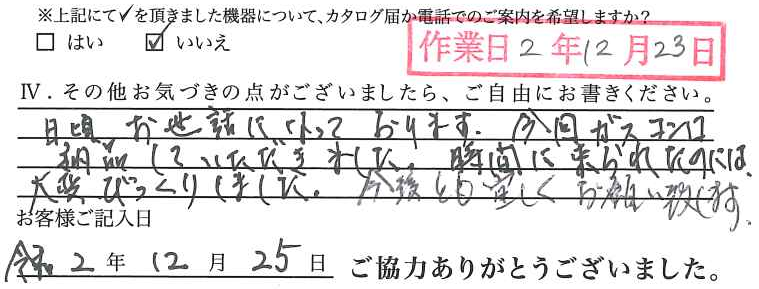 ※上記にて✓を頂きました機器について、カタログ届か電話でのご案内を希望しますか?
□ はい ☑ いいえ
作業日 2 年 12 月 23 日
Ⅳ．その他お気づきの点がございましたら、ご自由にお書きください。
日頃 お世話になって おります。今回ガスコンロ
納品していただきました。時間に来られたのには、
大変びっくりしました。今後とも宜しくお願い致します。
お客様ご記入日
令和 2 年 12 月 25 日 ご協力ありがとうございました。